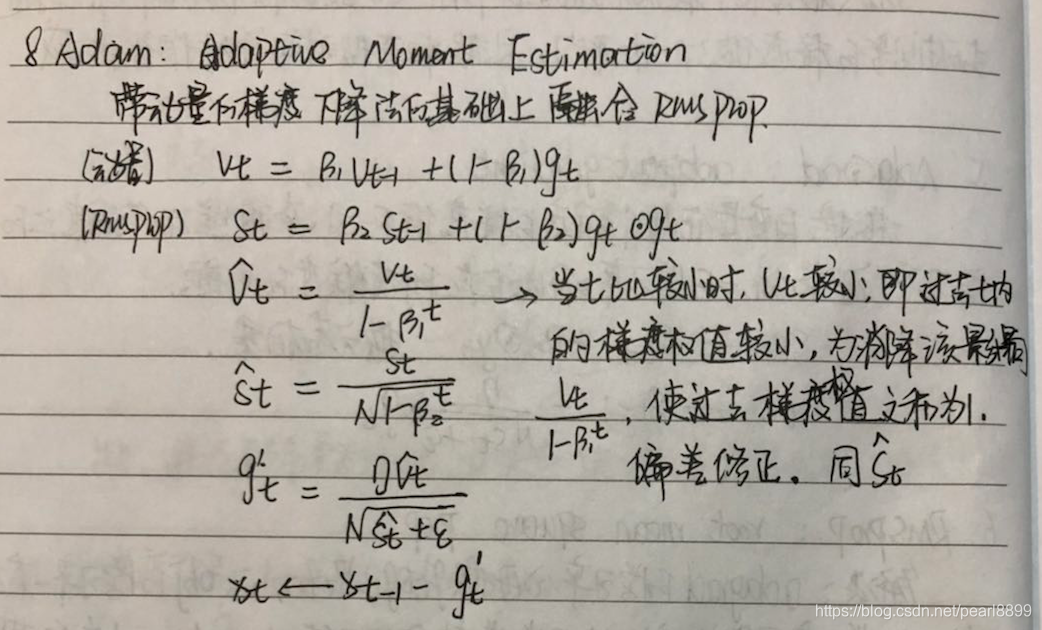 8 Adam: Adaptive Moment Estimation
带动量的梯度下降法的基础上 融合 RmsProp.
(动量) Vt = β₁Vt-1 + (1-β₁)gt
(RmsProp) St = β₂St-1 + (1-β₂)gt⊙gt
V̂t = Vt / (1-β₁^t) → 当t比较小时, Vt较小, 即过去t内
的梯度权值较小, 为消除该影响
Ŝt = St / √(1-β₂^t) Vt / (1-β₁^t), 使过去梯度权值之和为1.
偏差修正。同Ŝt
g't = ηV̂t / √(Ŝt+ε)
xt ← xt-1 - g't
https://blog.csdn.net/pearl8899